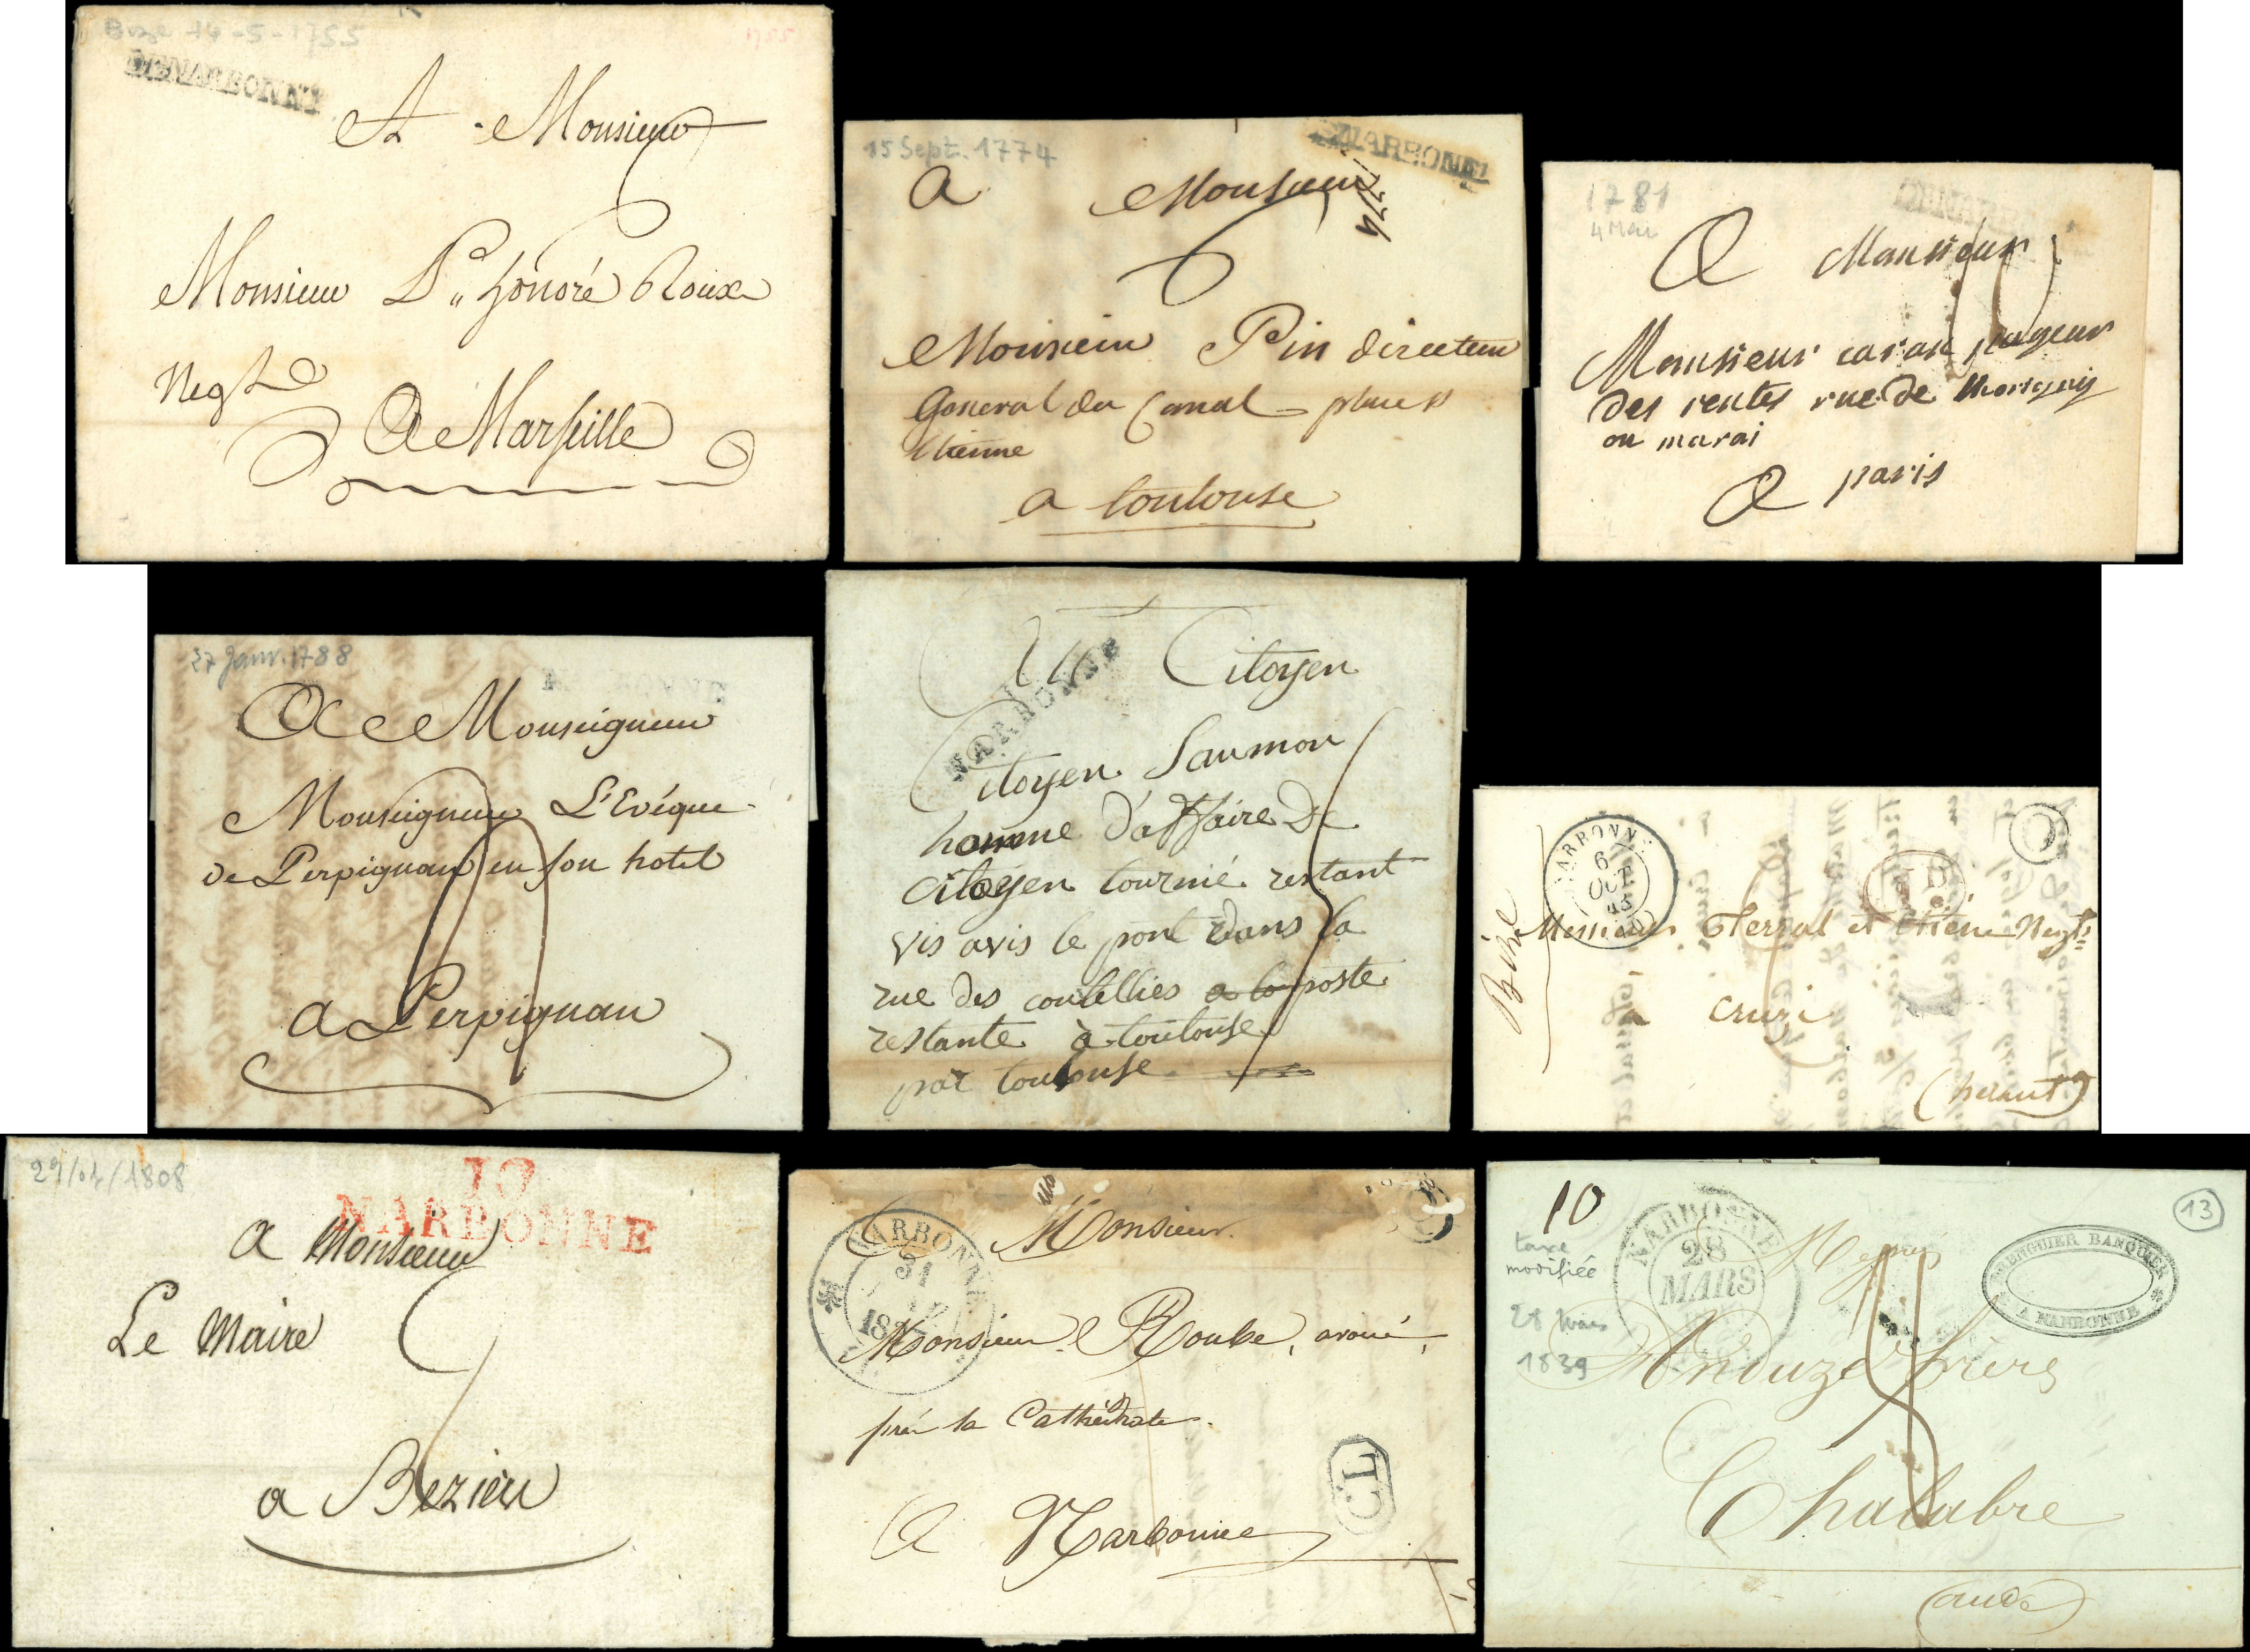 Bize 14-5-1755
1755
DENARBONNE
A Monsieur
Monsieur Lt honoré Roux
Negt
A Marseille
15 Sept. 1774
DENARBONNE
1774
A Monsieur
6
Monsieur Pin directeur
General du Canal place St
Etienne
a toulouse
1781
4 Mai
DENARB
A Monsieur
Monsieur
des rentes rue de
au marai
A paris
27 Janv. 1788
A Monseigneur
Monseigneur L'Evéque
de Perpignan en son hotel
a Perpignan
NARBONNE
Au Citoyen
Citoyen Saumon
homme d'affaire De
citoyen tournié restant
vis avis le pont dans la
rue des coutelliés a la poste
restante a toulouse
par toulouse
NARBONNE
6
OCT
45
(10)
I D
O
Bize
Messieurs Terral et Etiene Negts
a Cruzi
(herault)
29/04/1808
10
NARBONNE
a Monsieur
Le Maire
a Beziers
NARBONNE
31
18
Monsieur
Monsieur Roube, avoué,
près la Cathédrale.
CL
A Narbonne
10
taxe
modifiée
28 Mars
1839
NARBONNE
28
MARS
BERENGUIER BANQUIER
A NARBONNE
13
Messieurs
Anduze frères
Chalabre
(aude)